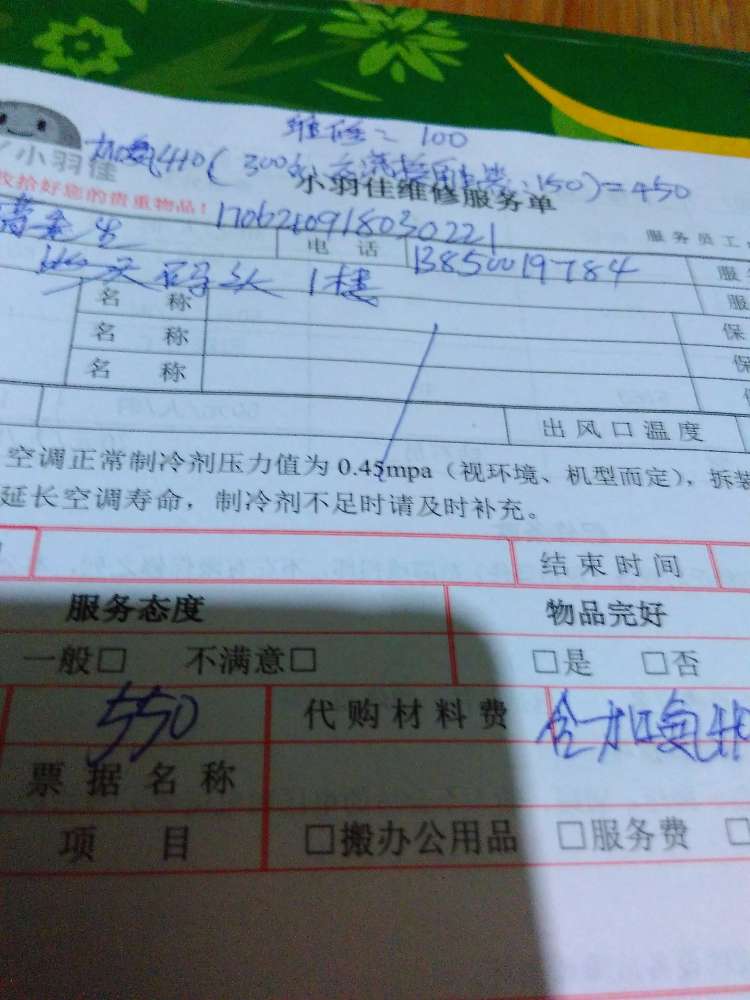 维修＝100
小羽佳
加氟410(300 150)=450
小羽佳维修服务单
收拾好您的贵重物品！
1706210918030221
服务员工
电 话 13850019784 服
码头 1楼
名 称 服
名 称 保
名 称 保
出风口温度
空调正常制冷剂压力值为 0.45mpa（视环境、机型而定），拆装
延长空调寿命，制冷剂不足时请及时补充。
结束时间
服务态度 物品完好
一般□ 不满意□ □是 □否
550 代购材料费 含加氟
票据名称
项 目 □搬办公用品 □服务费 □